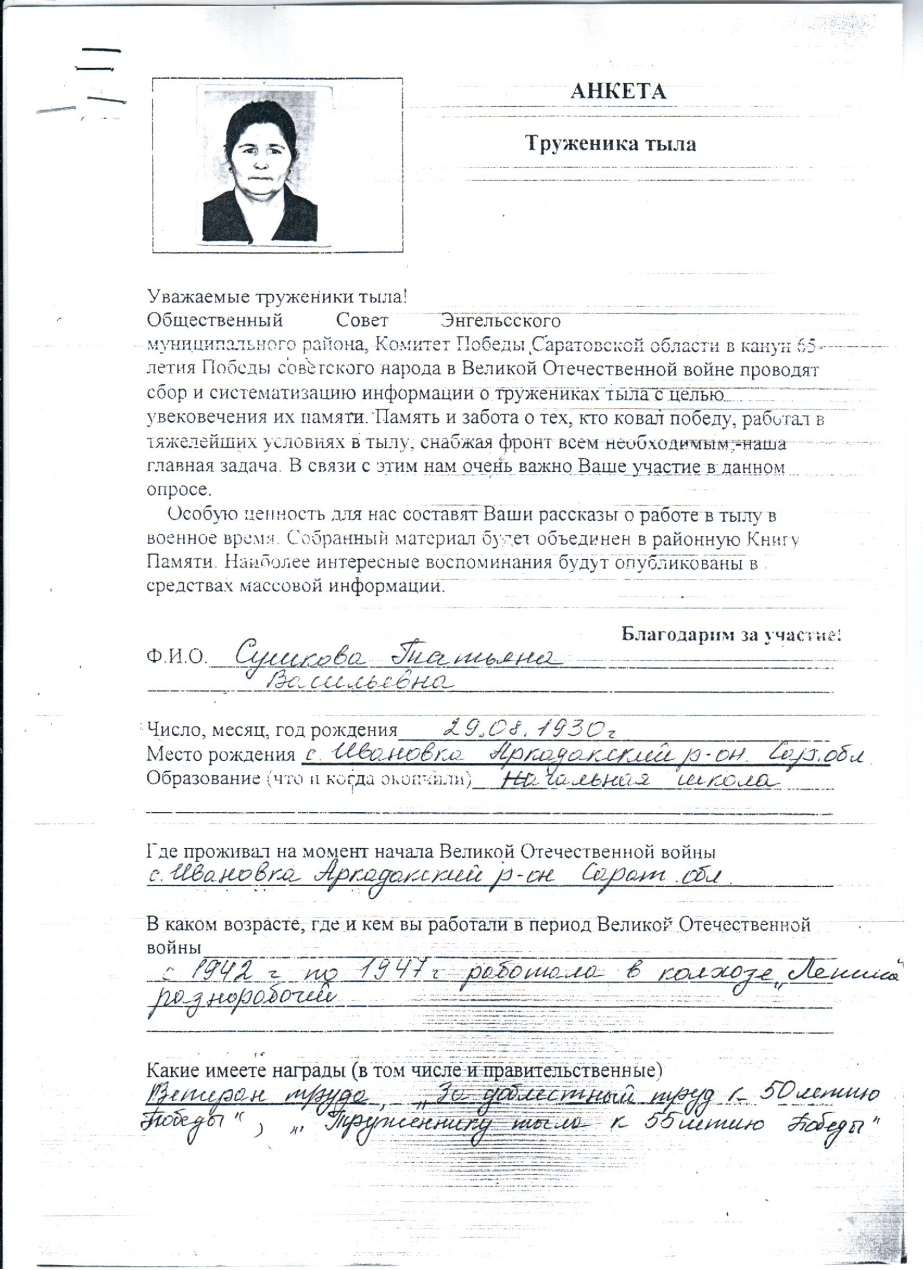 АНКЕТА
Труженика тыла
Уважаемые труженики тыла!
Общественный Совет Энгельсского
муниципального района, Комитет Победы Саратовской области в канун 65-
летия Победы советского народа в Великой Отечественной войне проводят
сбор и систематизацию информации о тружениках тыла с целью
увековечения их памяти. Память и забота о тех, кто ковал победу, работал в
тяжелейших условиях в тылу, снабжая фронт всем необходимым,-наша
главная задача. В связи с этим нам очень важно Ваше участие в данном
опросе.
Особую ценность для нас составят Ваши рассказы о работе в тылу в
военное время. Собранный материал будет объединен в районную Книгу
Памяти. Наиболее интересные воспоминания будут опубликованы в
средствах массовой информации.
Благодарим за участие!
Ф.И.О. Сушкова Татьяна
Васильевна
Число, месяц, год рождения 29.08.1930 г
Место рождения с. Ивановка Аркадакский р-он. Сар.обл
Образование (что и когда окончили) Начальная школа
Где проживал на момент начала Великой Отечественной войны
с. Ивановка Аркадакский р-он Сарат. обл
В каком возрасте, где и кем вы работали в период Великой Отечественной
войны
с 1942 г по 1947 г работала в колхозе „Ленина"
разнорабочий
Какие имеете награды (в том числе и правительственные)
Ветеран труда, „За доблестный труд к 50летию
Победы", „Труженнику тыла к 55летию Победы"